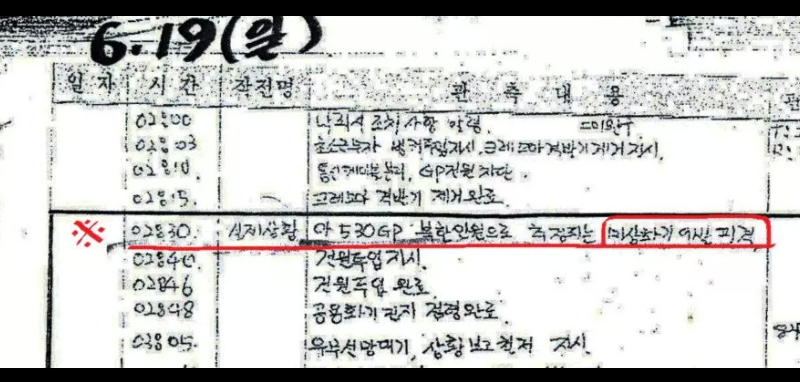 6.19(일)
일자 시간 작전명 관측내용
02:00 낙뢰시 조치사항 하령.
02:03 초소근무자 벙커투입지시. 크레모아 격발기 제거지시.
02:10 통신케이블분리, GP전원 차단.
02:15. 크레모아 격발기 제거완료.
※ 02:30. 실제상황 아 530GP 북한인원으로 추정되는 미상화기 9발 피격
02:40. 전원투입지시.
02:46 전원투입 완료
02:48 공용화기 진지 점령완료.
03:05. 유무선망대기, 상황보고철저 지시.